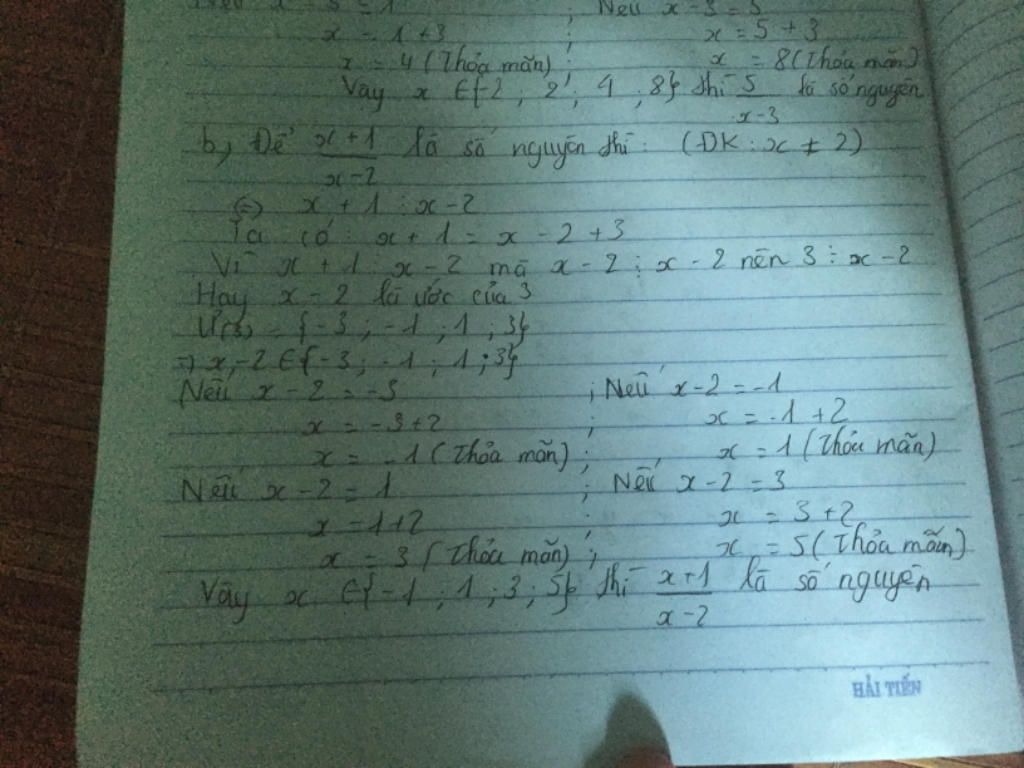 Nếu x - 3 = 1 ; Nếu x - 3 = 5
x = 1 + 3 ; x = 5 + 3
x = 4 (Thỏa mãn) ; x = 8 (Thỏa mãn)
Vậy x ∈ {-2 ; 2 ; 4 ; 8} thì 5/(x-3) là số nguyên
b, Để (x+1)/(x-2) là số nguyên thì : (ĐK : x ≠ 2)
(=) x + 1 ⋮ x - 2
Ta có : x + 1 = x - 2 + 3
Vì x + 1 ⋮ x - 2 mà x - 2 ⋮ x - 2 nên 3 ⋮ x - 2
Hay x - 2 là ước của 3
Ư(3) = {-3 ; -1 ; 1 ; 3}
=) x - 2 ∈ {-3 ; -1 ; 1 ; 3}
Nếu x - 2 = -3 ; Nếu x - 2 = -1
x = -3 + 2 ; x = -1 + 2
x = -1 (Thỏa mãn) ; x = 1 (Thỏa mãn)
Nếu x - 2 = 1 ; Nếu x - 2 = 3
x = 1 + 2 ; x = 3 + 2
x = 3 (Thỏa mãn) ; x = 5 (Thỏa mãn)
Vậy x ∈ {-1 ; 1 ; 3 ; 5} thì (x+1)/(x-2) là số nguyên
HẢI TIẾN